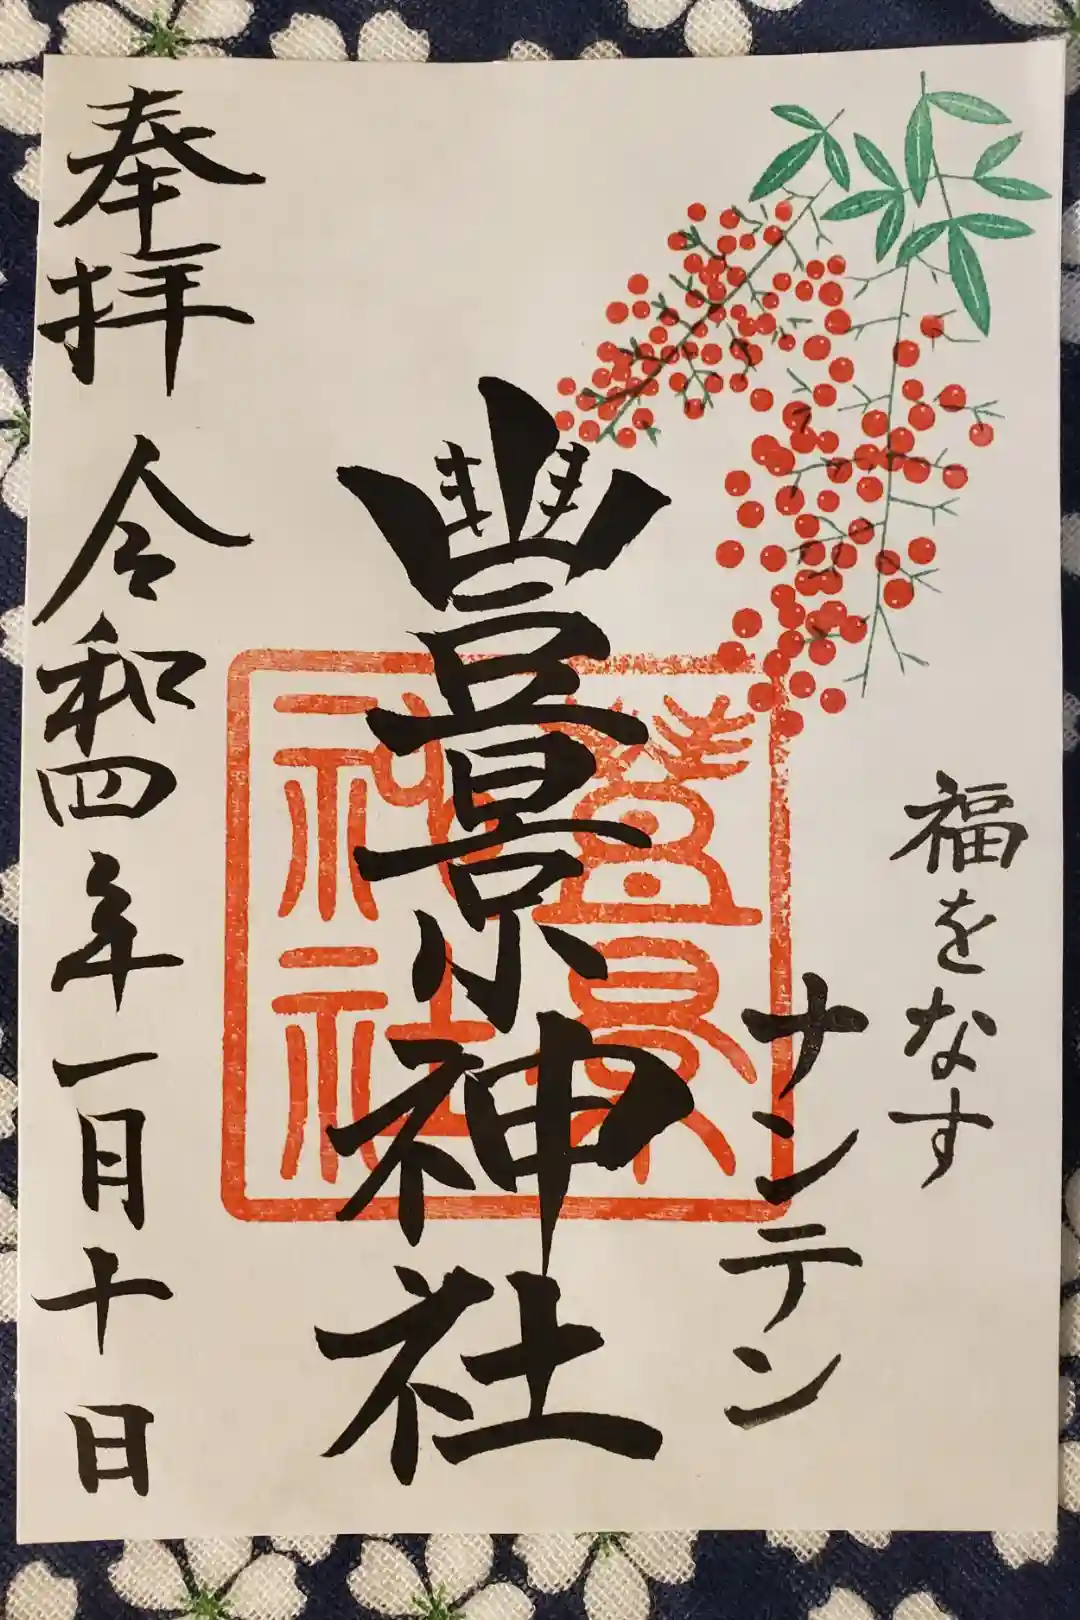 福をなす
ナンテン
豊景神社
豊景神社
奉拝 令和四年一月十日